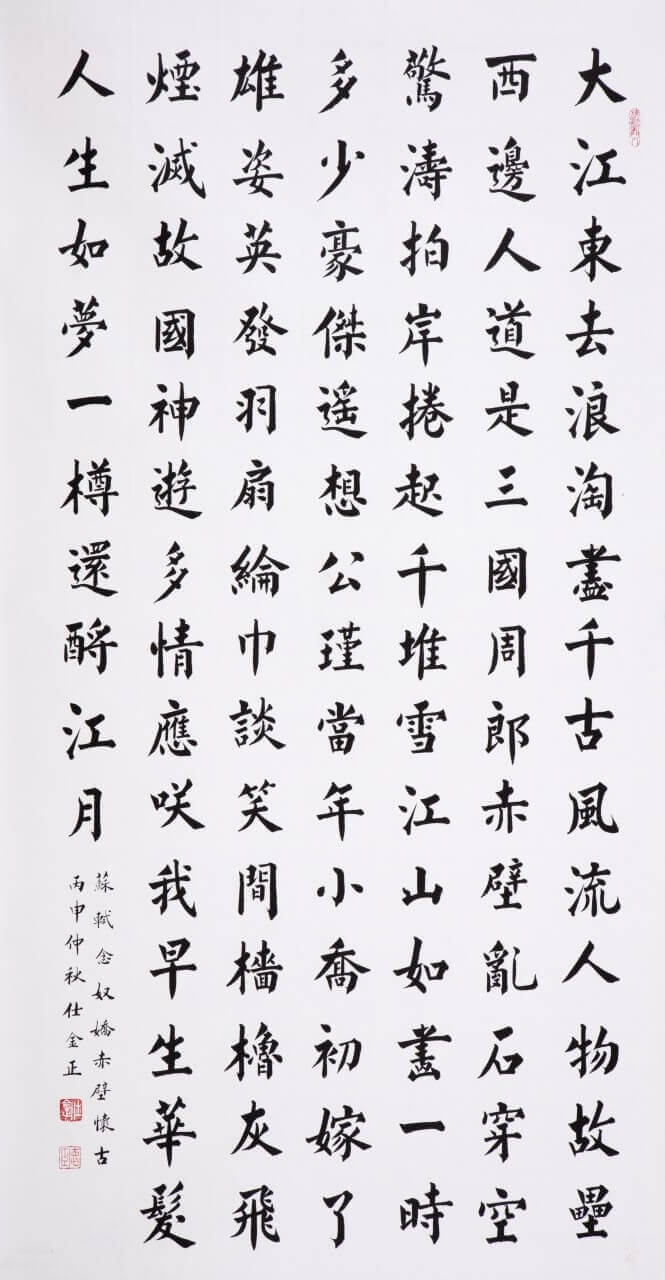 大江東去浪淘盡千古風流人物故壘
西邊人道是三國周郎赤壁亂石穿空
驚濤拍岸捲起千堆雪江山如畫一時
多少豪傑遥想公瑾當年小喬初嫁了
雄姿英發羽扇綸巾談笑間檣櫓灰飛
煙滅故國神遊多情應咲我早生華髮
人生如夢一樽還酹江月
蘇軾念奴嬌赤壁懷古
丙申仲秋仕金正